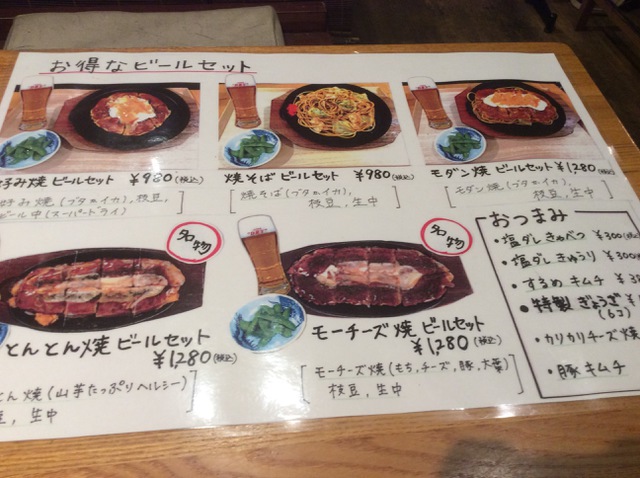 お得なビールセット
好み焼 ビールセット ¥980(税込)
好み焼(ブタorイカ), 枝豆,
ビール中(スーパードライ)
焼そば ビールセット ¥980(税込)
焼そば(ブタorイカ),
枝豆, 生中
モダン焼 ビールセット ¥1,280(税込)
モダン焼(ブタorイカ),
枝豆, 生中
名物
とんとん焼 ビールセット
¥1,280(税込)
とん焼(山芋たっぷりヘルシー)
豆, 生中
名物
モーチーズ焼 ビールセット
¥1,280(税込)
モーチーズ焼(もち,チーズ,豚,大葉)
枝豆, 生中
おつまみ
・塩ダレきゃべつ ¥300(税込)
・塩ダレきゅうり ¥300
・するめキムチ
・特製ぎょうざ
(6コ)
・カリカリチーズ焼
・豚キムチ